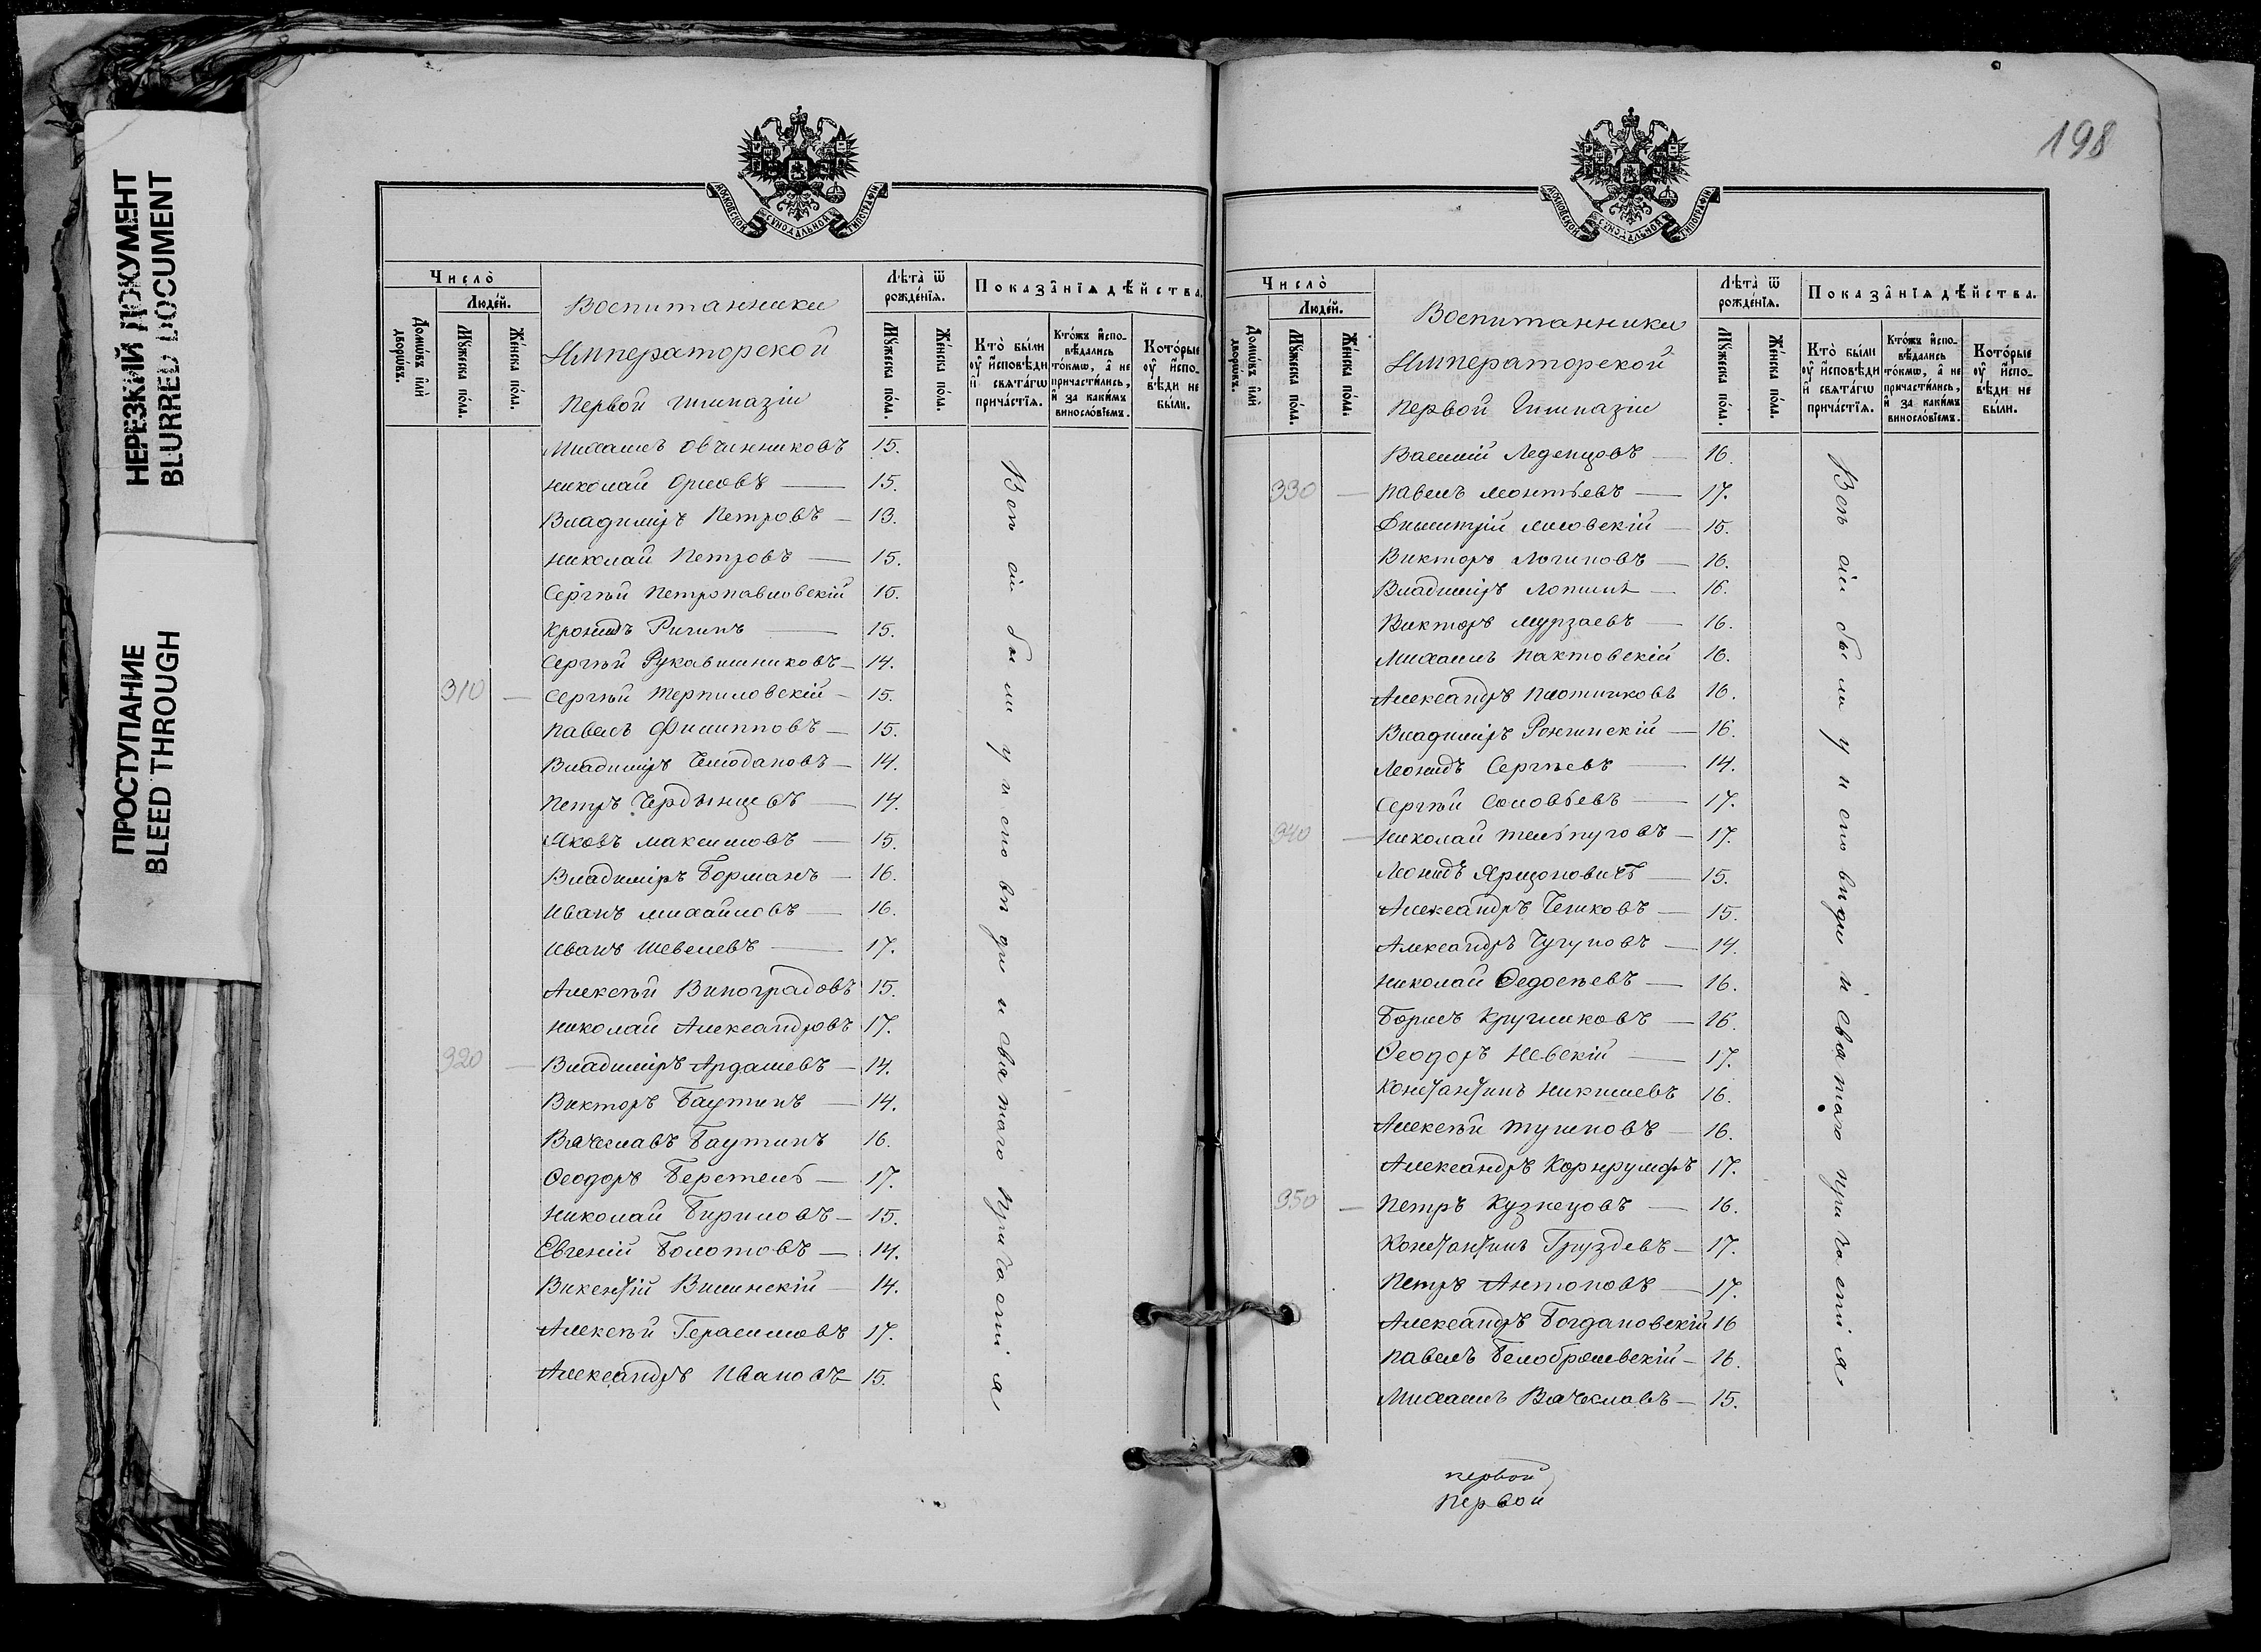 НЕРЕЗКИЙ ДОКУМЕНТ
BLURRED DOCUMENT
ПРОСТУПАНИЕ
BLEED THROUGH
МОСКОВСКОЙ СѴНОДАЛЬНОЙ ТИПОГРАФІИ
Число̀
Людéй.
Домѡ́въ и҆лѝ дворѡ́въ.
Мꙋ́жеска по́ла.
Же́нска по́ла.
Воспитанники
Императорской
Первой Гимназіи
Лѣ́та ѿ рожде́нїѧ.
Мꙋ́жеска по́ла.
Же́нска по́ла.
Показа̂нїѧ дѣ́йства.
Кто̀ бы́ли ᲂу҆ и҆сповѣ́ди и҆ свѧта́гѡ причáстїѧ.
Кто́жъ и҆спо-вѣ́дались то́кмѡ, а҆ не причасти́лись, и҆ за каки́мъ винослóвїемъ.
Котóрые ᲂу҆ и҆спо-вѣ́ди не бы́ли.
Михаилъ Овчинниковъ 15.
Николай Орловъ — 15.
Владиміръ Петровъ — 13.
Николай Петровъ — 15.
Сергѣй Петропавловскій 15.
Кронидъ Ригинъ — 15.
Сергѣй Рукавишниковъ — 14.
310 — Сергѣй Терпиловскій — 15.
Павелъ Филипповъ — 15.
Владиміръ Чемодановъ — 14.
Петръ Чердынцевъ — 14.
Яковъ Максимовъ — 15.
Владиміръ Борманъ — 16.
Иванъ Михайловъ — 16.
Иванъ Шевелевъ — 17.
Алексѣй Виноградовъ 15.
Николай Александровъ 17.
320 — Владиміръ Ардашевъ — 14.
Викторъ Баутинъ — 14.
Вячеславъ Баутинъ 16.
Ѳеодоръ Берстель — 17.
Николай Бириловъ — 15.
Евгеній Болотовъ — 14.
Викентій Вишинскій — 14.
Алексѣй Герасимовъ 17.
Александръ Ивановъ 15.
Всѣ сіи были у исповѣди и святаго причастія
198
МОСКОВСКОЙ СѴНОДАЛЬНОЙ ТИПОГРАФІИ
Число̀
Людéй.
Домѡ́въ и҆лѝ дворѡ́въ.
Мꙋ́жеска по́ла.
Же́нска по́ла.
Воспитанники
Императорской
Первой Гимназіи
Лѣ́та ѿ рожде́нїѧ.
Мꙋ́жеска по́ла.
Же́нска по́ла.
Показа̂нїѧ дѣ́йства.
Кто̀ бы́ли ᲂу҆ и҆сповѣ́ди и҆ свѧта́гѡ причáстїѧ.
Кто́жъ и҆спо-вѣ́дались то́кмѡ, а҆ не причасти́лись, и҆ за каки́мъ винослóвїемъ.
Котóрые ᲂу҆ и҆спо-вѣ́ди не бы́ли.
Василій Леденцовъ — 16.
330 — Павелъ Леонтьевъ — 17.
Димитрій Лисовскій — 15.
Викторъ Логиновъ — 16.
Владиміръ Лопинъ — 16.
Викторъ Мурзаевъ — 16.
Михаилъ Пактовскій 16.
Александръ Плотниковъ 16.
Владиміръ Рончинскій — 16.
Леонидъ Сергѣевъ — 14.
Сергѣй Соловьевъ — 17.
340 — Николай Тельпуговъ — 17.
Леонидъ Ярцоновичъ — 15.
Александръ Челиковъ — 15.
Александръ Чугуновъ — 14.
Николай Ѳедосѣевъ — 16.
Борисъ Кругликовъ — 16.
Ѳеодоръ Невскій — 17.
Константинъ Никишевъ 16.
Алексѣй Тулиновъ — 16.
Александръ Корнрумфъ 17.
350 — Петръ Кузнецовъ — 16.
Константинъ Груздевъ — 17.
Петръ Антоновъ — 17.
Александръ Богдановскій 16
Павелъ Белобржевскій — 16.
Михаилъ Вячеславъ — 15.
Всѣ сіи были у исповѣди и святаго причастія
первой
Первой